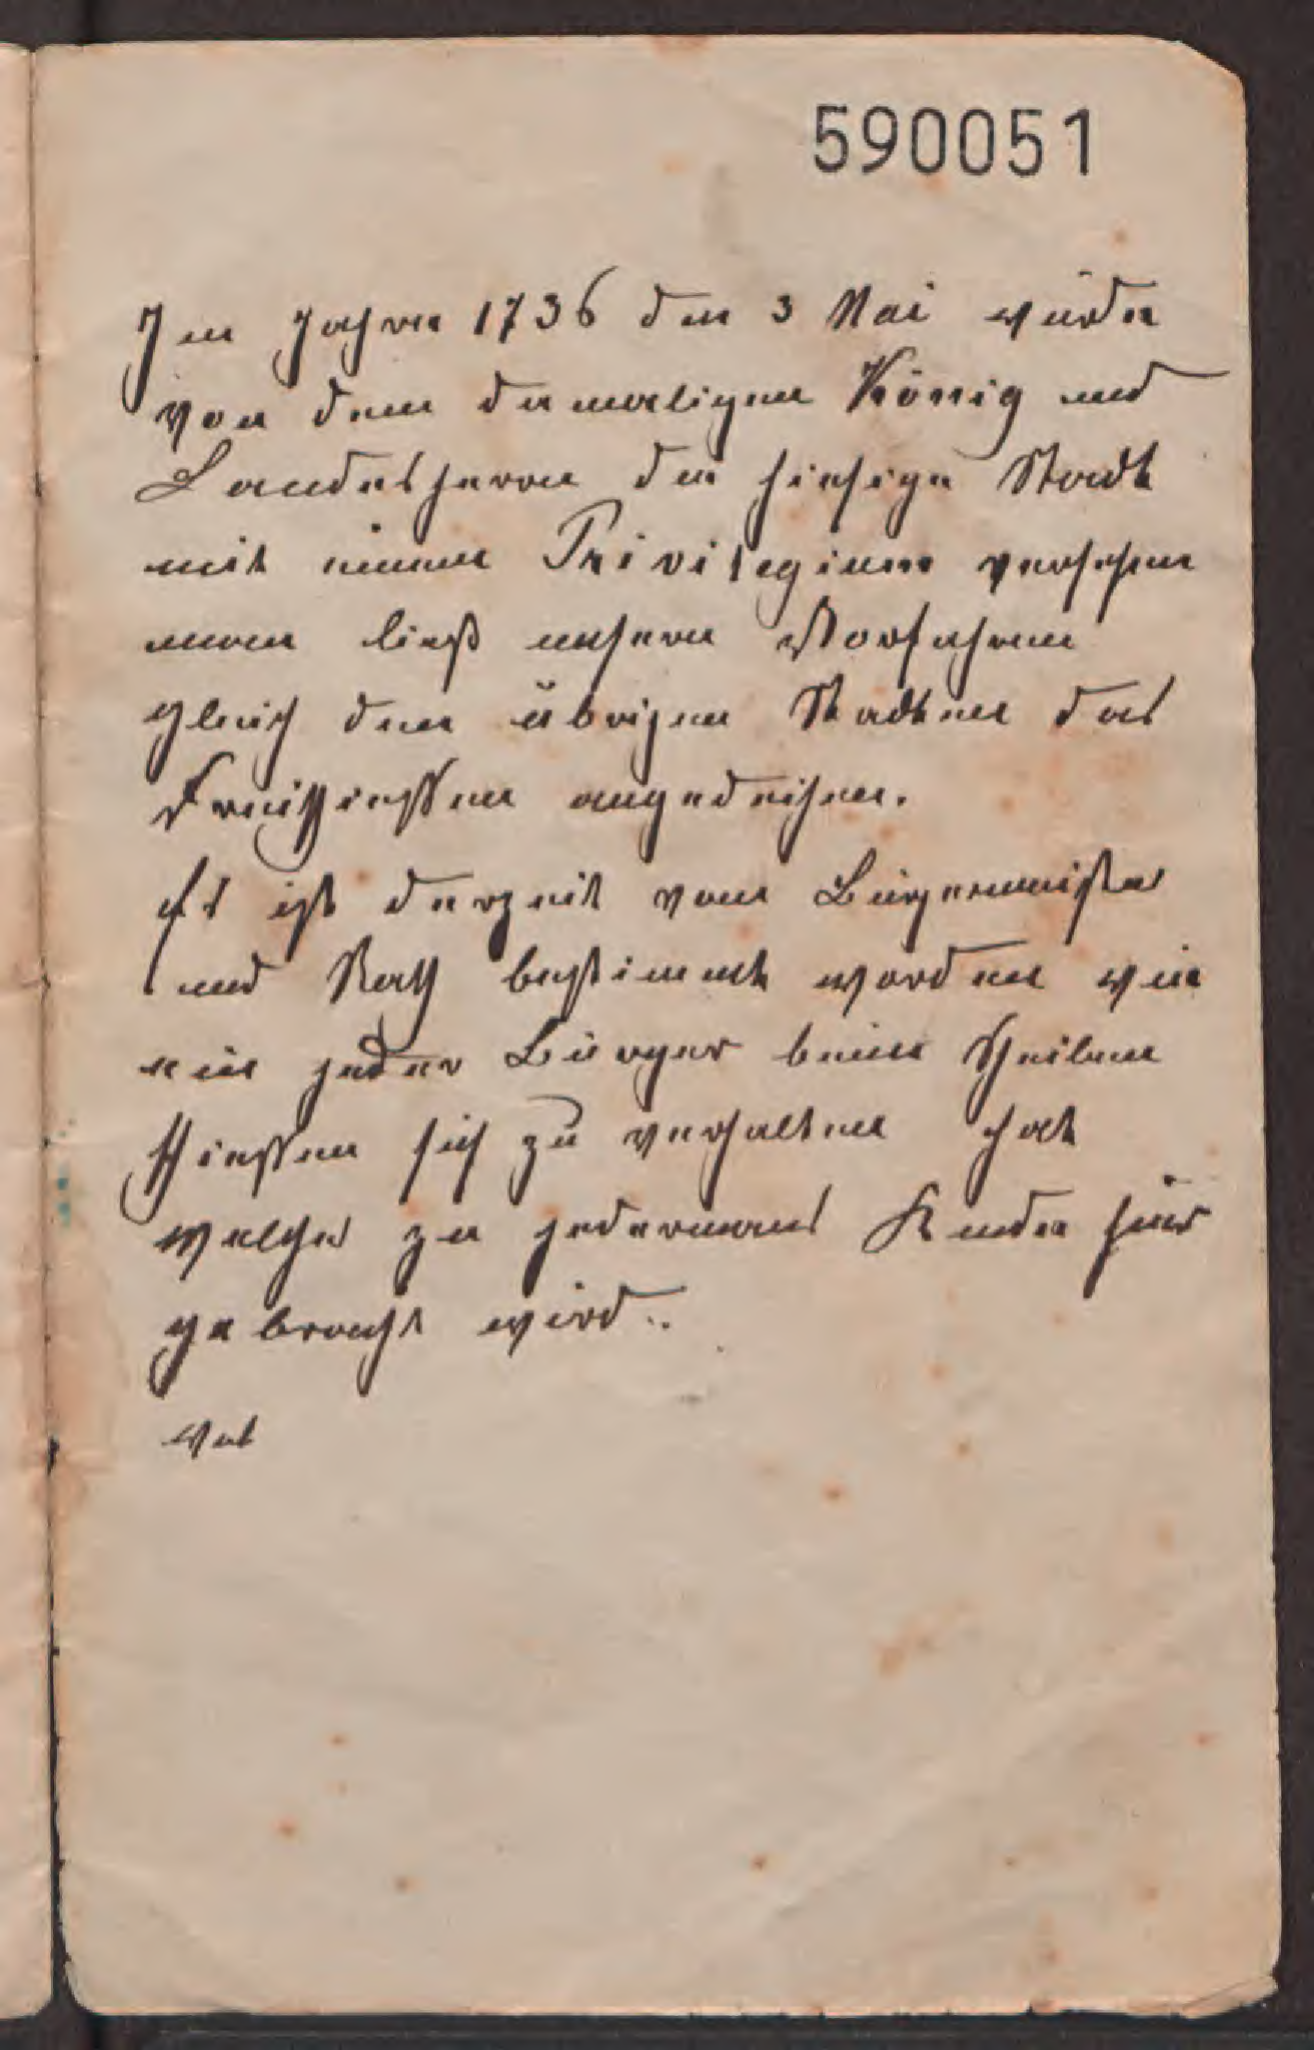 590051
Im Jahre 1736 den 3 Mai wurde
von dem damaligen König und
Landesherrn die hiesige Stadt
mit einem Privilegium versehen
man ließ unsern Vorfahren
gleich den übrigen Stadten das
Freischießen angedeihen.
Es ist derzeit vom Bürgermeister
und Rath bestimmt worden wie
ein jeder Bürger beim Scheiben
schießen sich zu verhalten hat
welches zu jedermans Kunde hier
gebracht wird.